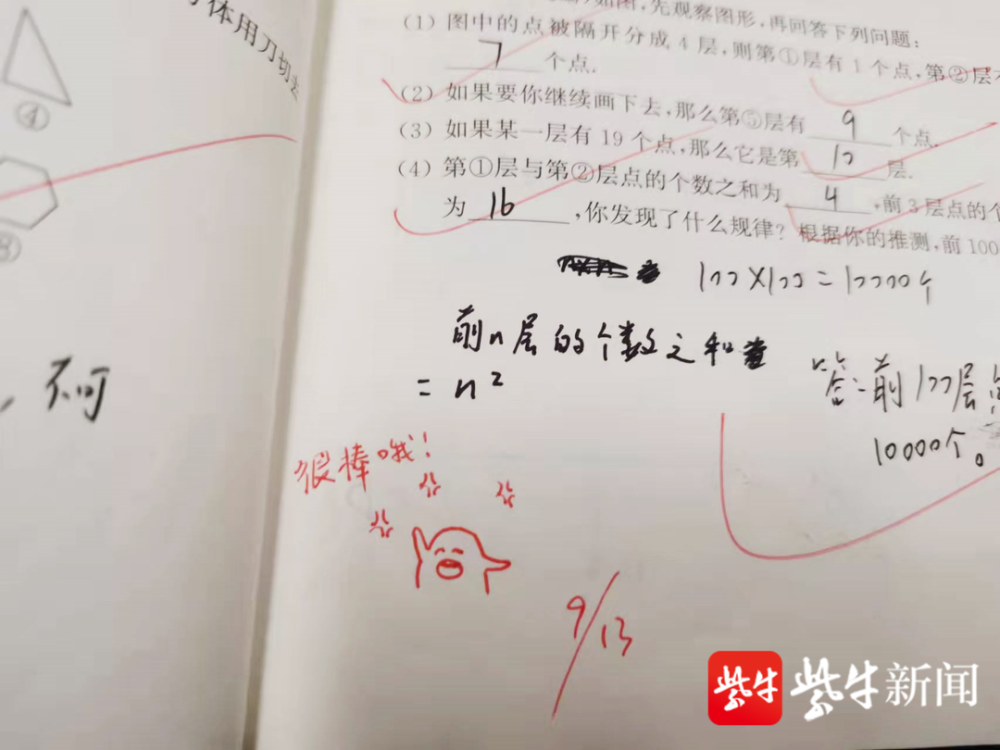 体用刀切去
④
⑧
不可
如图,先观察图形,再回答下列问题:
(1) 图中的点被隔开分成 4 层,则第①层有 1 个点,第②层
7 个点.
(2) 如果要你继续画下去,那么第⑤层有 9 个点.
(3) 如果某一层有 19 个点,那么它是第 10 层.
(4) 第①层与第②层点的个数之和为 4 ,前 3 层点的个
为 16 ,你发现了什么规律? 根据你的推测,前 100
100×100=10000个
前n层的个数之和
= n²
答:前100层
10000个。
很棒哦!
9/13
紫牛 紫牛新闻